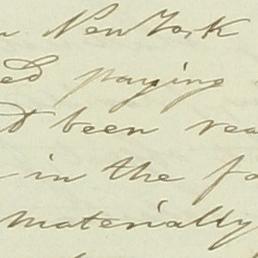 New York
ed paying
been rea
in the fo
materially